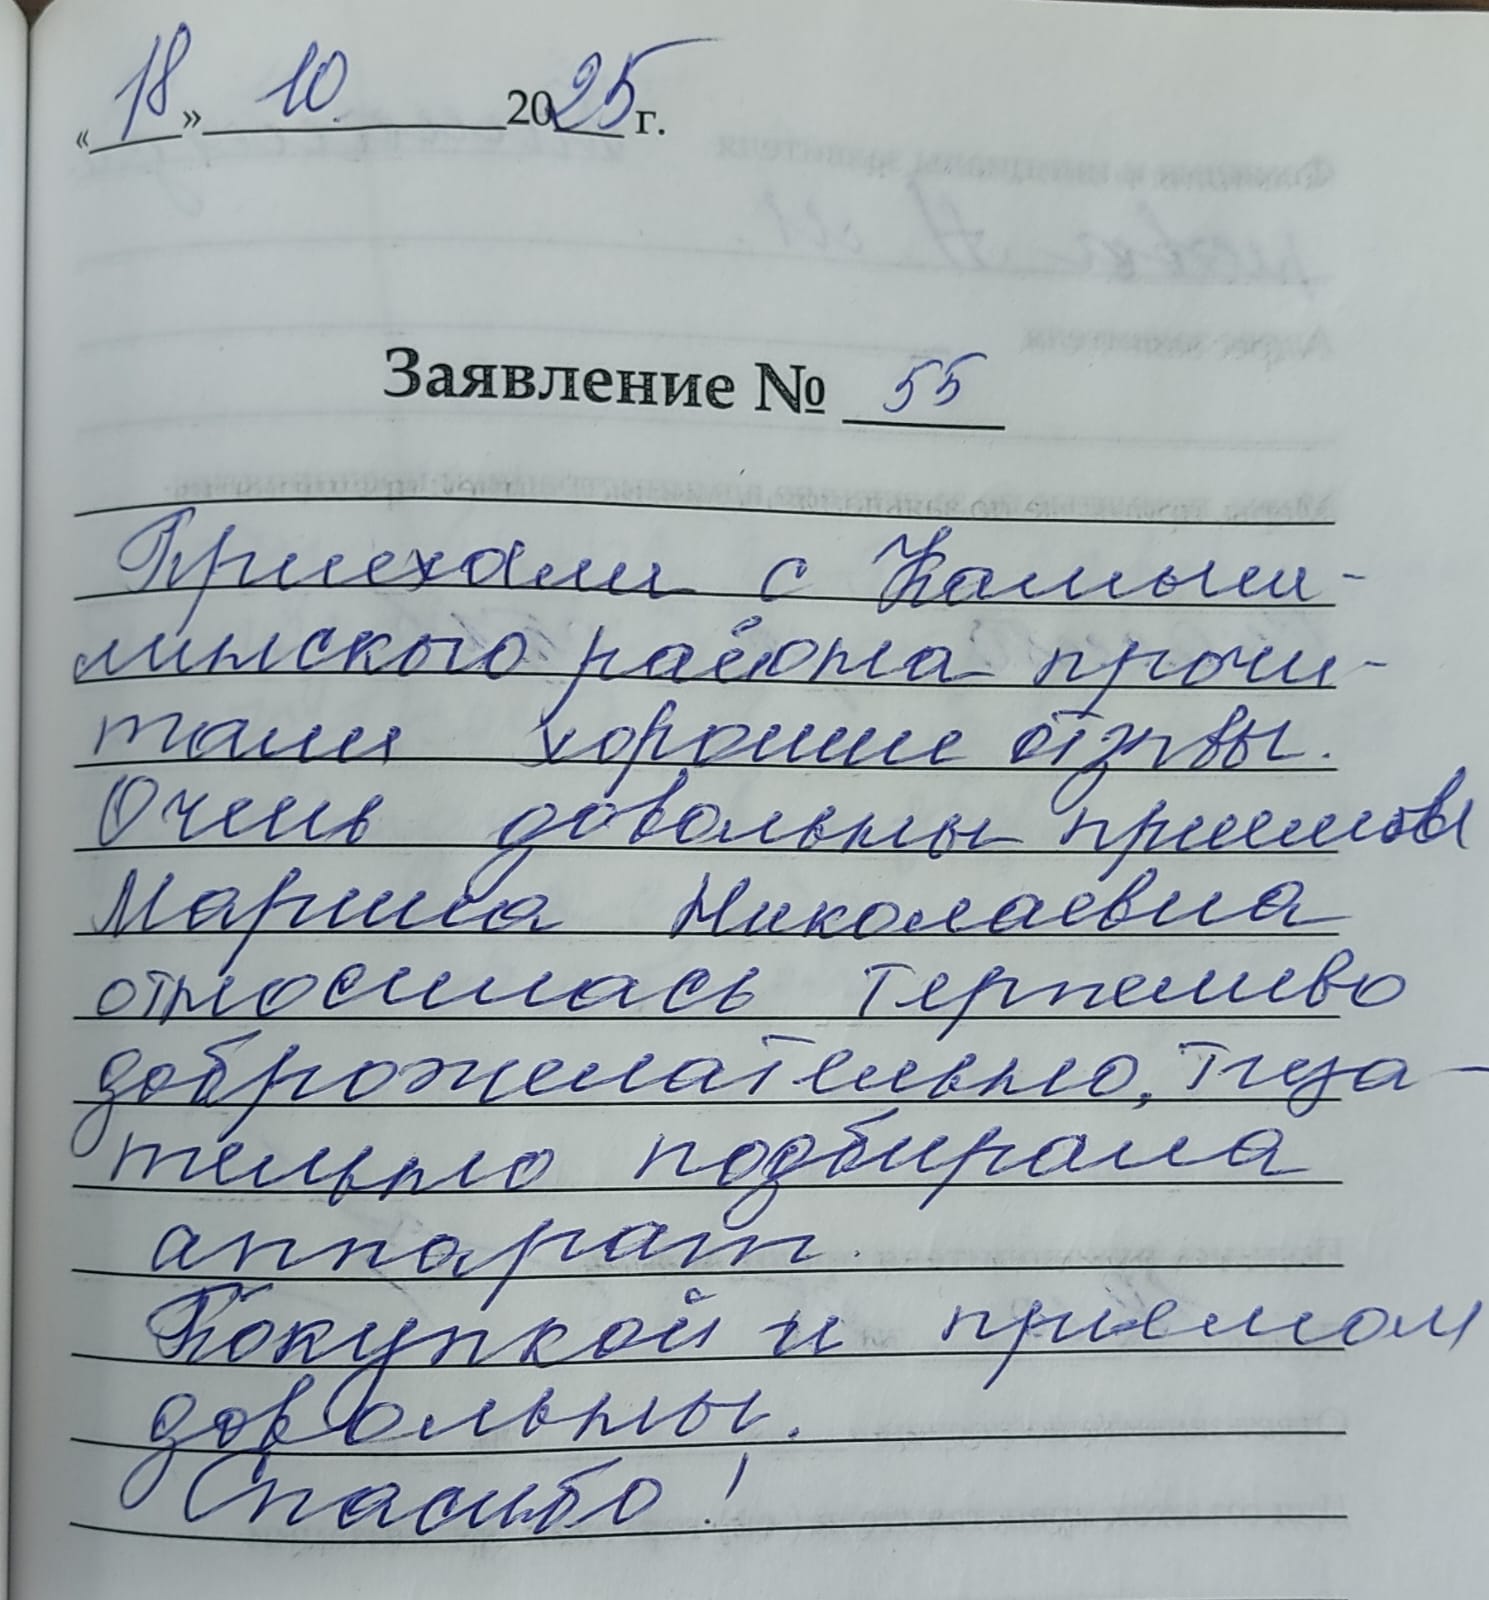 «18» 10. 2025 г.
Заявление № 55
Приехали с Камыш-
линского района прочи-
тали хорошие отзывы.
Очень довольны приемом
Марина Николаевна
относилась терпеливо
доброжелательно, тща-
тельно подбирала
аппарат.
Покупкой и приемом
довольны.
Спасибо!